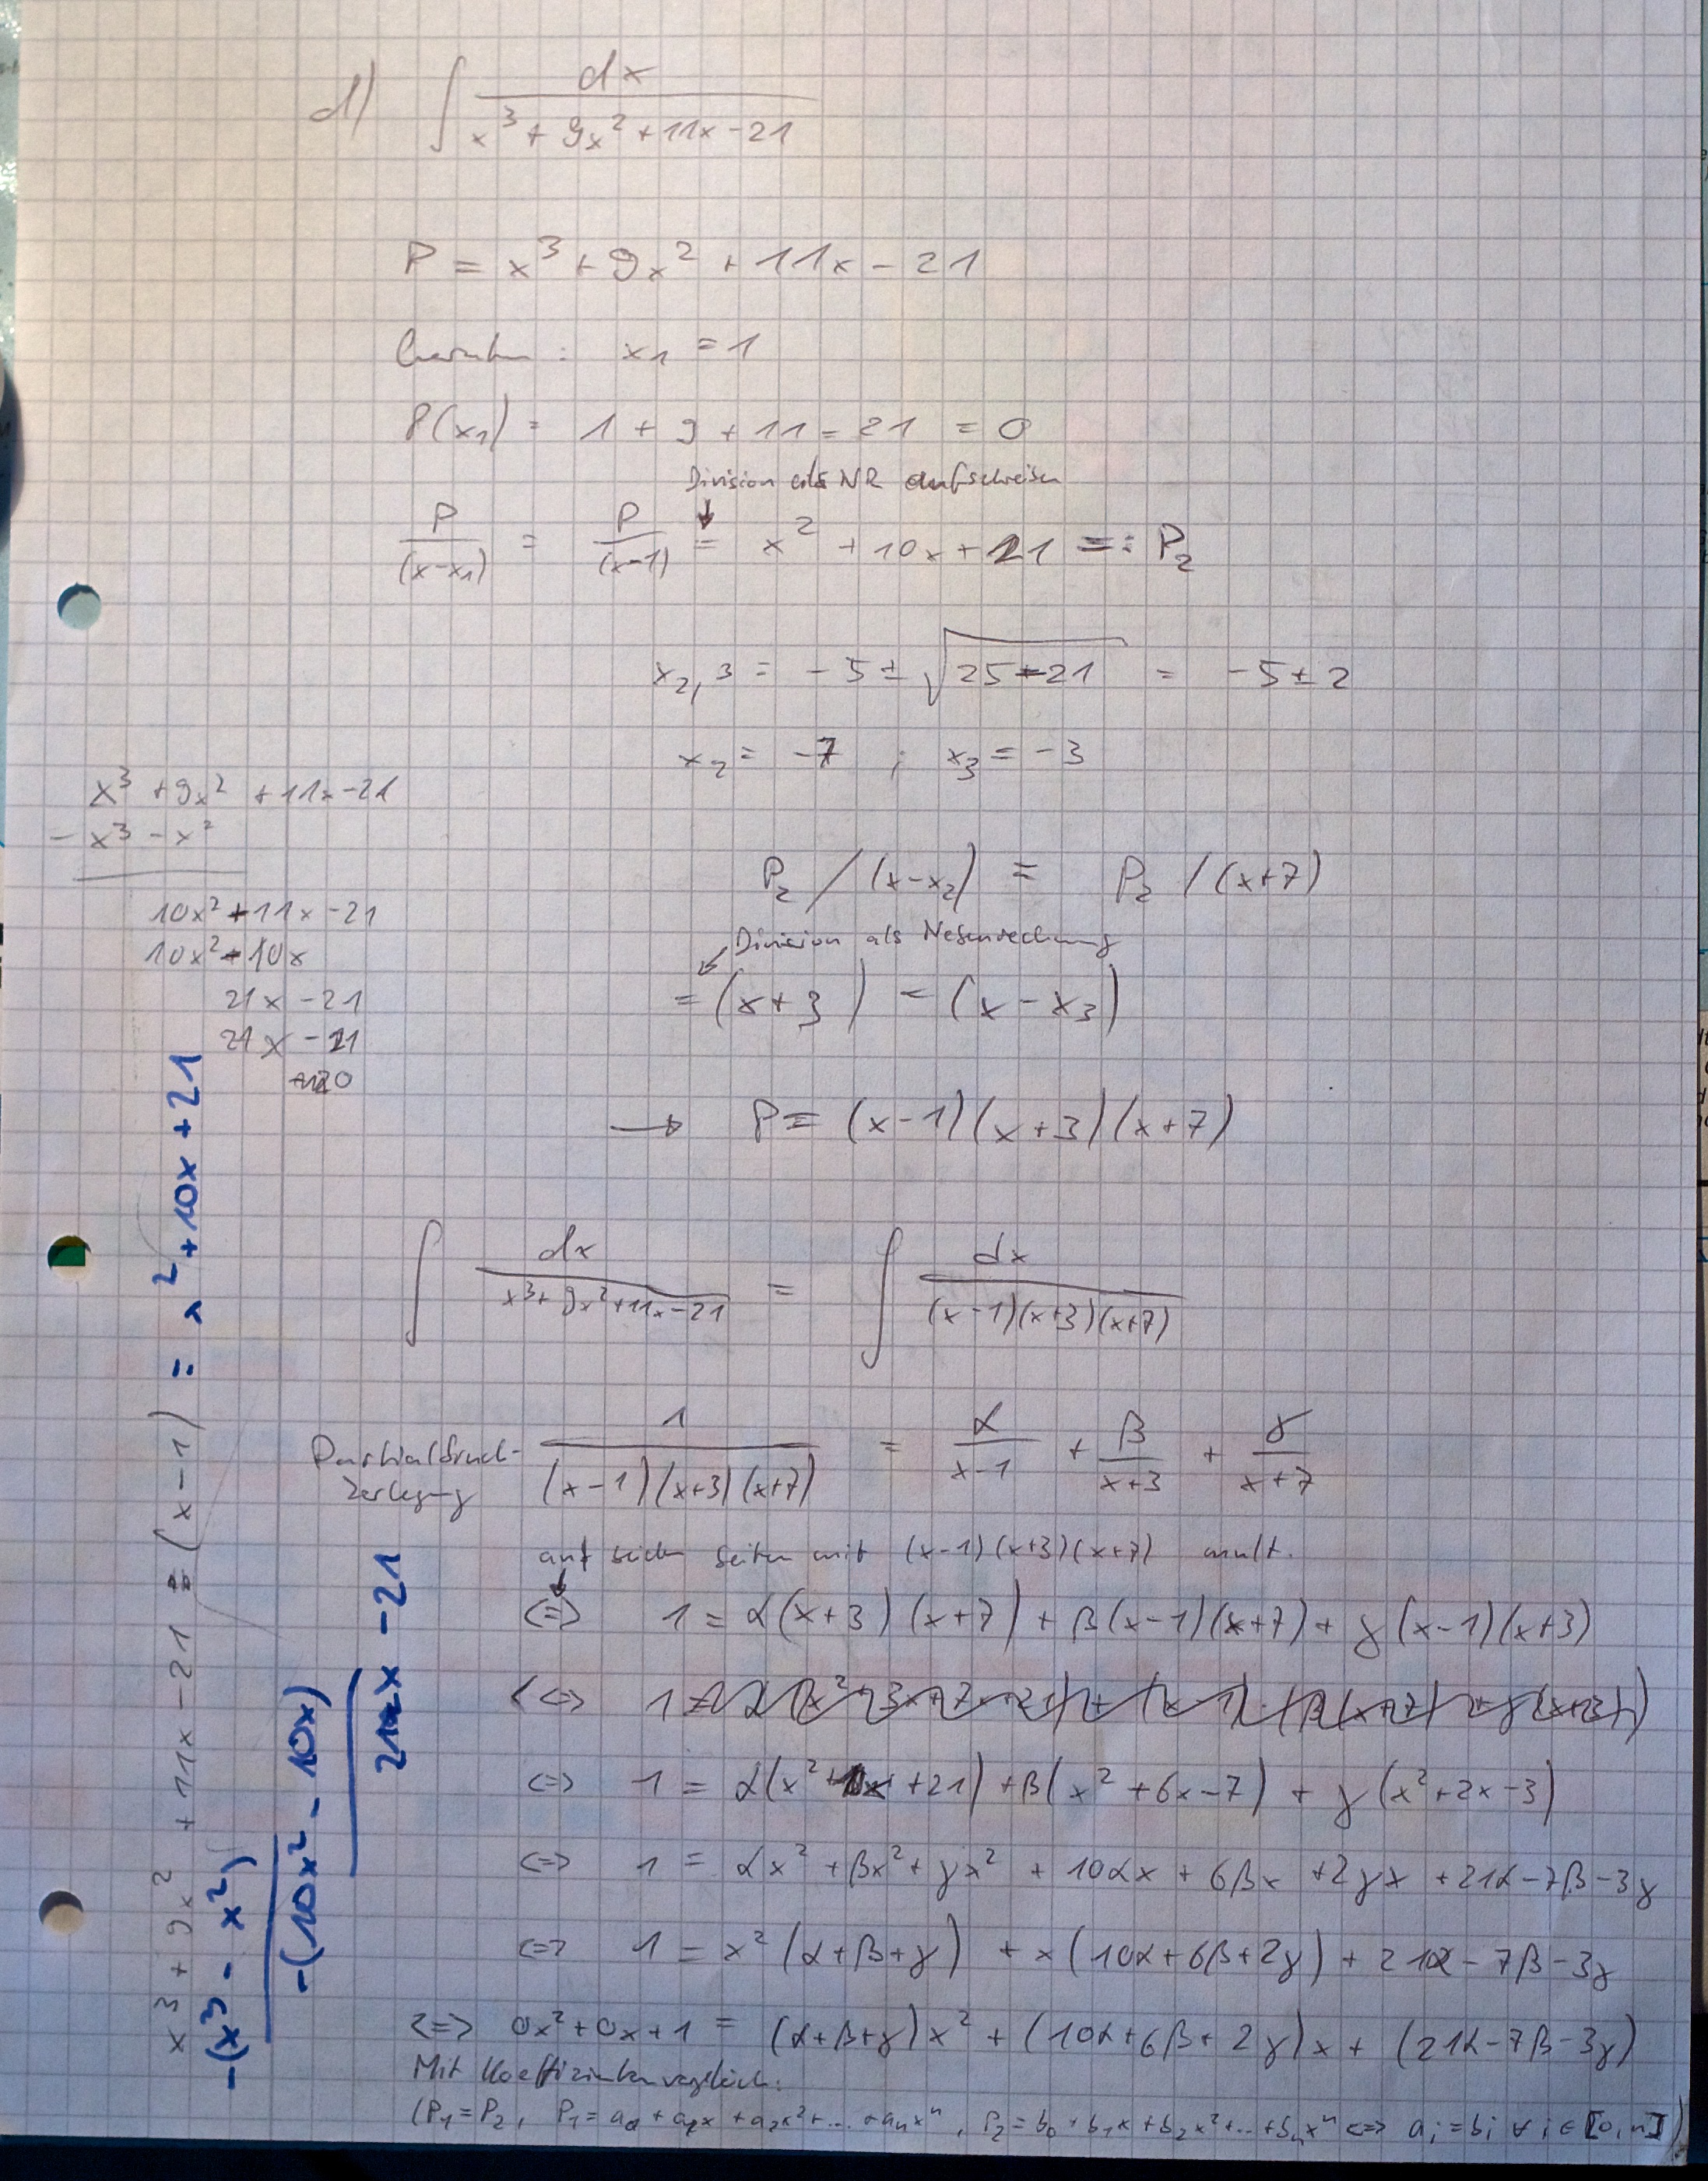 d) ∫ dx / (x³ + 9x² + 11x - 21)
P = x³ + 9x² + 11x - 21
x₁ = 1
P(x₁) = 1 + 9 + 11 - 21 = 0
Division als NR aufschreiben
P/(x-x₁) = P/(x-1) = x² + 10x + 21 =: P₂
x₂,₃ = -5 ± √(25-21) = -5 ± 2
x₂ = -7 ; x₃ = -3
x³ + 9x² + 11x - 21
- x³ - x²
10x² + 11x - 21
10x² - 10x
21x - 21
21x - 21
0
P₂ / (x-x₂) = P₂ / (x+7)
Division als Nebenrechnung
= (x+3) = (x - x₃)
→ P = (x-1)(x+3)(x+7)
∫ dx / (x³+9x²+11x-21) = ∫ dx / ((x-1)(x+3)(x+7))
Partialbruch-
zerlegung
1 / ((x-1)(x+3)(x+7)) = α/(x-1) + β/(x+3) + γ/(x+7)
auf beiden Seiten mit (x-1)(x+3)(x+7) mult.
<=> 1 = α(x+3)(x+7) + β(x-1)(x+7) + γ(x-1)(x+3)
<=> 1 = α(x²+10x+21) + β(x²+6x-7) + γ(x²+2x-3)
<=> 1 = αx² + βx² + γx² + 10αx + 6βx + 2γx + 21α - 7β - 3γ
<=> 1 = x²(α+β+γ) + x(10α+6β+2γ) + 21α - 7β - 3γ
<=> 0x²+0x+1 = (α+β+γ)x² + (10α+6β+2γ)x + (21α-7β-3γ)
Mit Koeffizientenvergleich:
(P₁=P₂, P₁ = a₀ + a₁x + a₂x² + ... + aₙxⁿ, P₂ = b₀ + b₁x + b₂x² + ... + bₙxⁿ <=> aᵢ = bᵢ ∀ i ∈ [0,n])
x³ + 9x² + 11x - 21 : (x-1) = x² + 10x + 21
-(x³ - x²)
-(10x² - 10x)
21x - 21